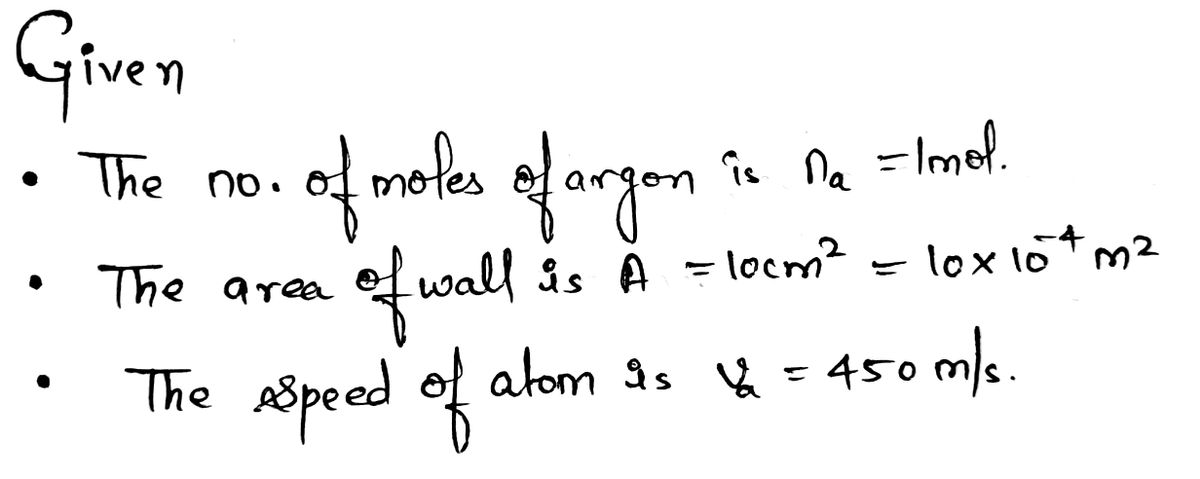 Given
• The no. of moles of argon is nₐ = 1mol.
• The area of wall is A = 10cm² = 10x10⁻⁴ m²
• The speed of atom is vₐ = 450 m/s.